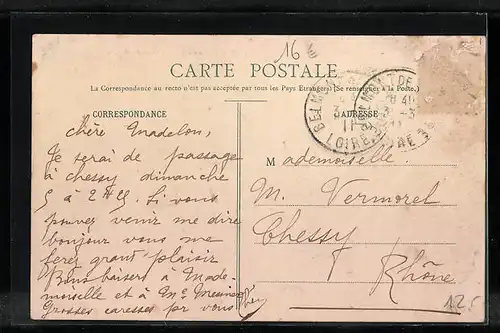 16
CARTE POSTALE
La Correspondance au recto n'est pas acceptée par tous les Pays Etrangers (Se renseigner à la Poste.)
CORRESPONDANCE
ADRESSE
BELMONT DE
LOIRE
Chère Madelon,
Je serai de passage
à chessy dimanche
5 à 2 H
Si vous
pouvez venir me dire
bonjour vous me
ferez grand plaisir
Bons baisers à Made
moiselle et à
Grosses caresses pr vous
Mademoiselle
M. Vermorel
Chessy
Rhône
12